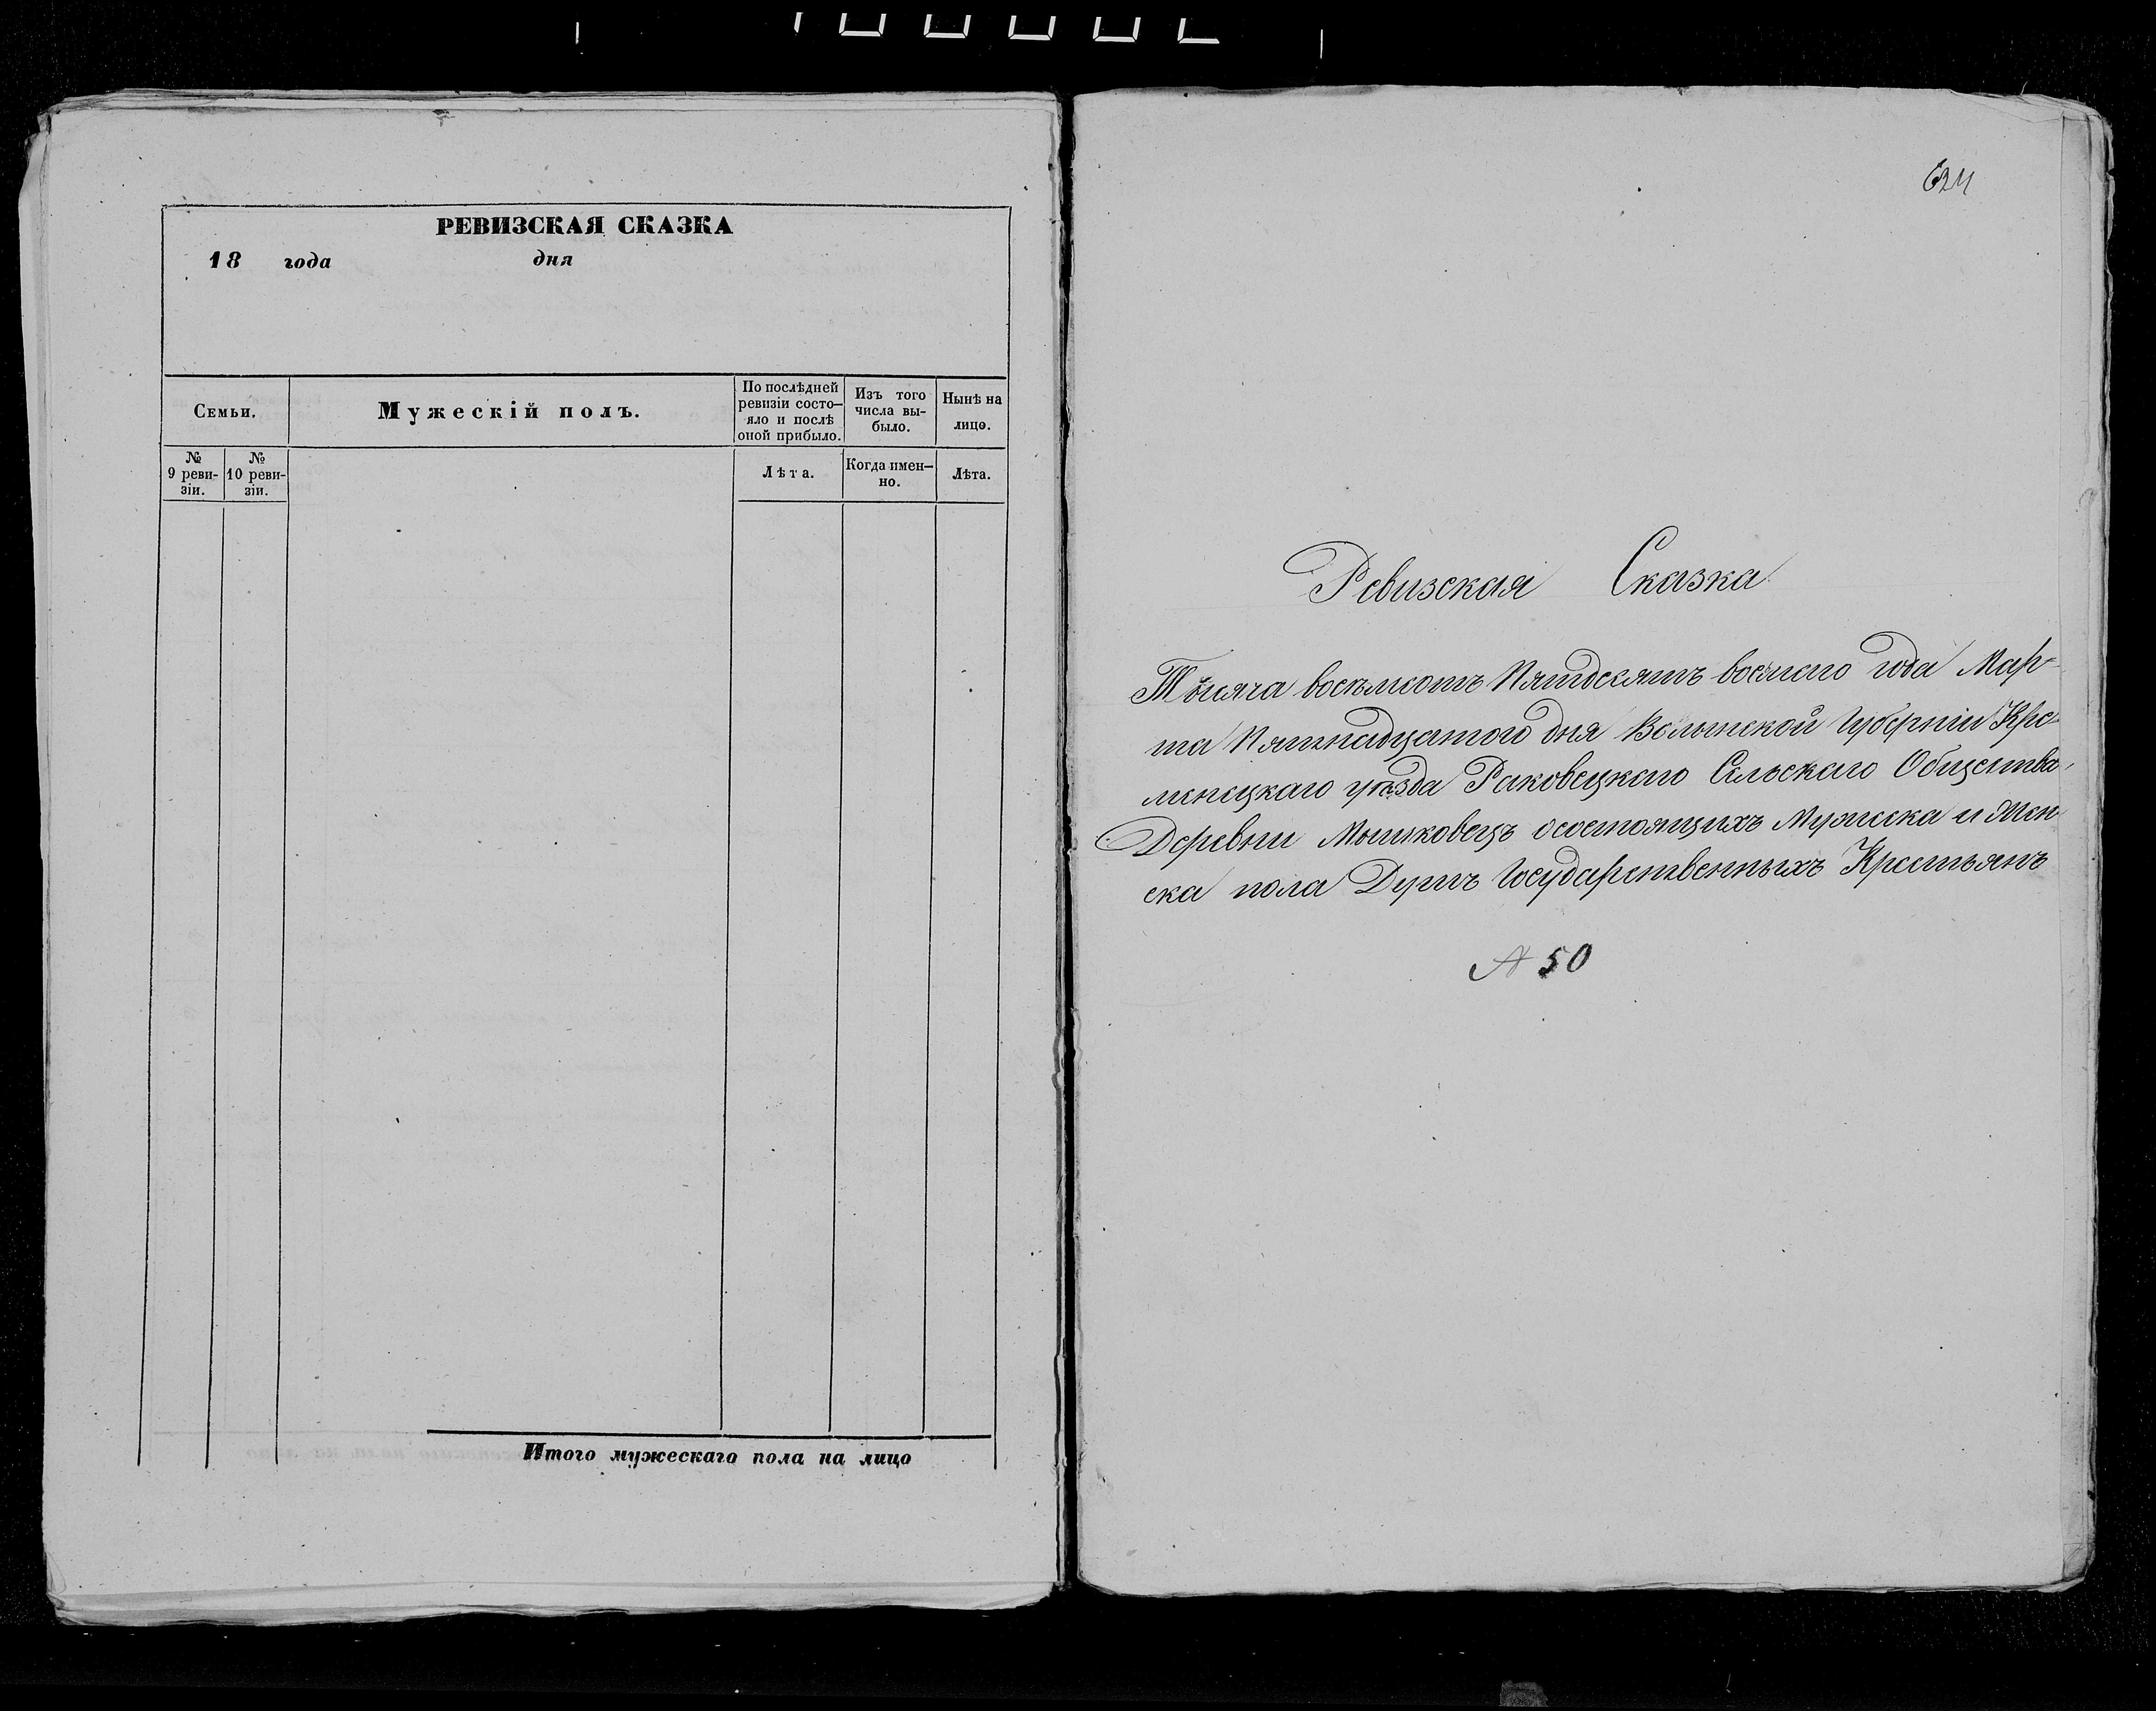 РЕВИЗСКАЯ СКАЗКА
18 года дня
Семьи.
Мужескій полъ.
По послѣдней
ревизіи состо-
яло и послѣ
оной прибыло.
Изъ того
числа вы-
было.
Нынѣ на
лицо.
№
9 реви-
зіи.
№
10 реви-
зіи.
Лѣта.
Когда имен-
но.
Лѣта.
Итого мужескаго пола на лицо
Ревизская Сказка
Тысяча восемьсотъ Пятдесятъ восмаго года Мар-
та Пятнадцатого дня Волынской Губерніи Кре-
менецкаго уѣзда Раковецкаго Сельскаго Общества,
Деревни Мышковецъ осостоящихъ Мужеска и Жен
ска пола Душъ Государственныхъ Крестьянъ
№ 50